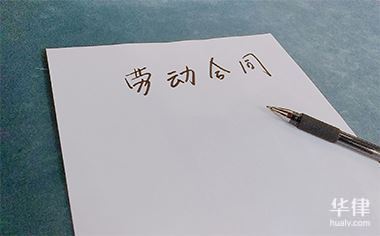 劳动合同
华律
hualv.com